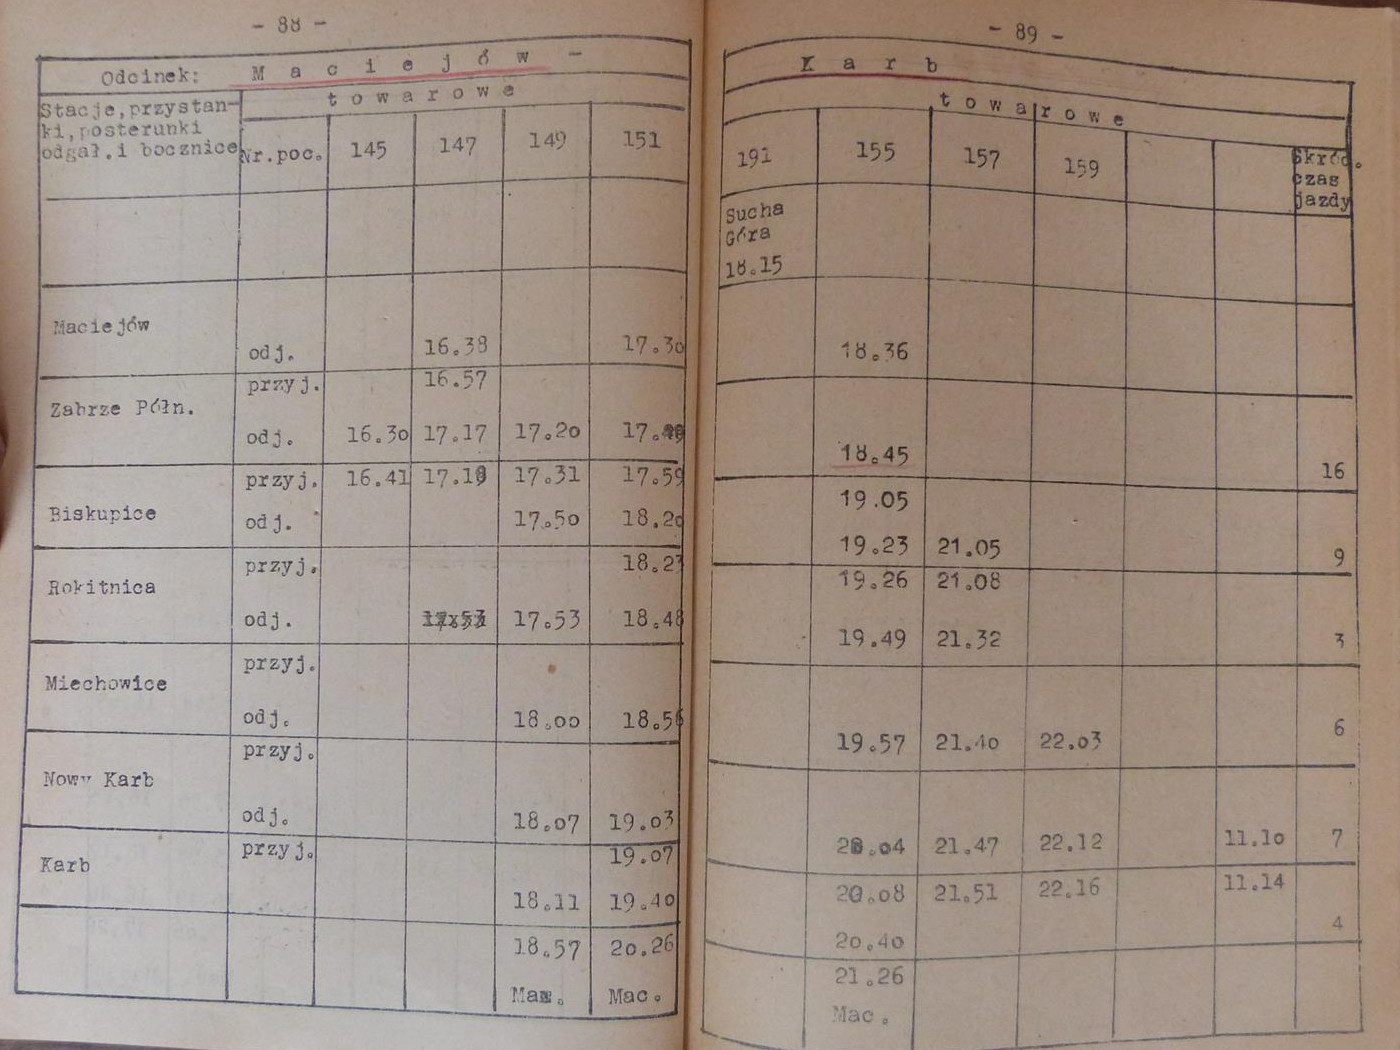 - 88 -
Odcinek: M a c i e j ó w -
Stacje,przystan-
ki,posterunki
odgał.i bocznice
t o w a r o w e
Nr.poc. 145 147 149 151
Maciejów
odj. 16.38 17.30
przyj. 16.57
Zabrze Półn.
odj. 16.30 17.17 17.20
przyj. 16.41 17.18 17.31 17.59
Biskupice
odj. 17.50 18.20
przyj. 18.23
Rokitnica
odj. 17.53 18.48
przyj.
Miechowice
odj. 18.00 18.56
przyj.
Nowy Karb
odj. 18.07 19.03
przyj. 19.07
Karb
18.11 19.40
18.57 20.26
Mac.
- 89 -
K a r b
t o w a r o w e
191 155 157 159
Skróc.
czas
jazdy
Sucha
Góra
18.15
18.36
18.45 16
19.05
19.23 21.05 9
19.26 21.08
19.49 21.32 3
19.57 21.40 22.03 6
20.04 21.47 22.12 11.10 7
20.08 21.51 22.16 11.14
20.40 4
21.26
Mac.